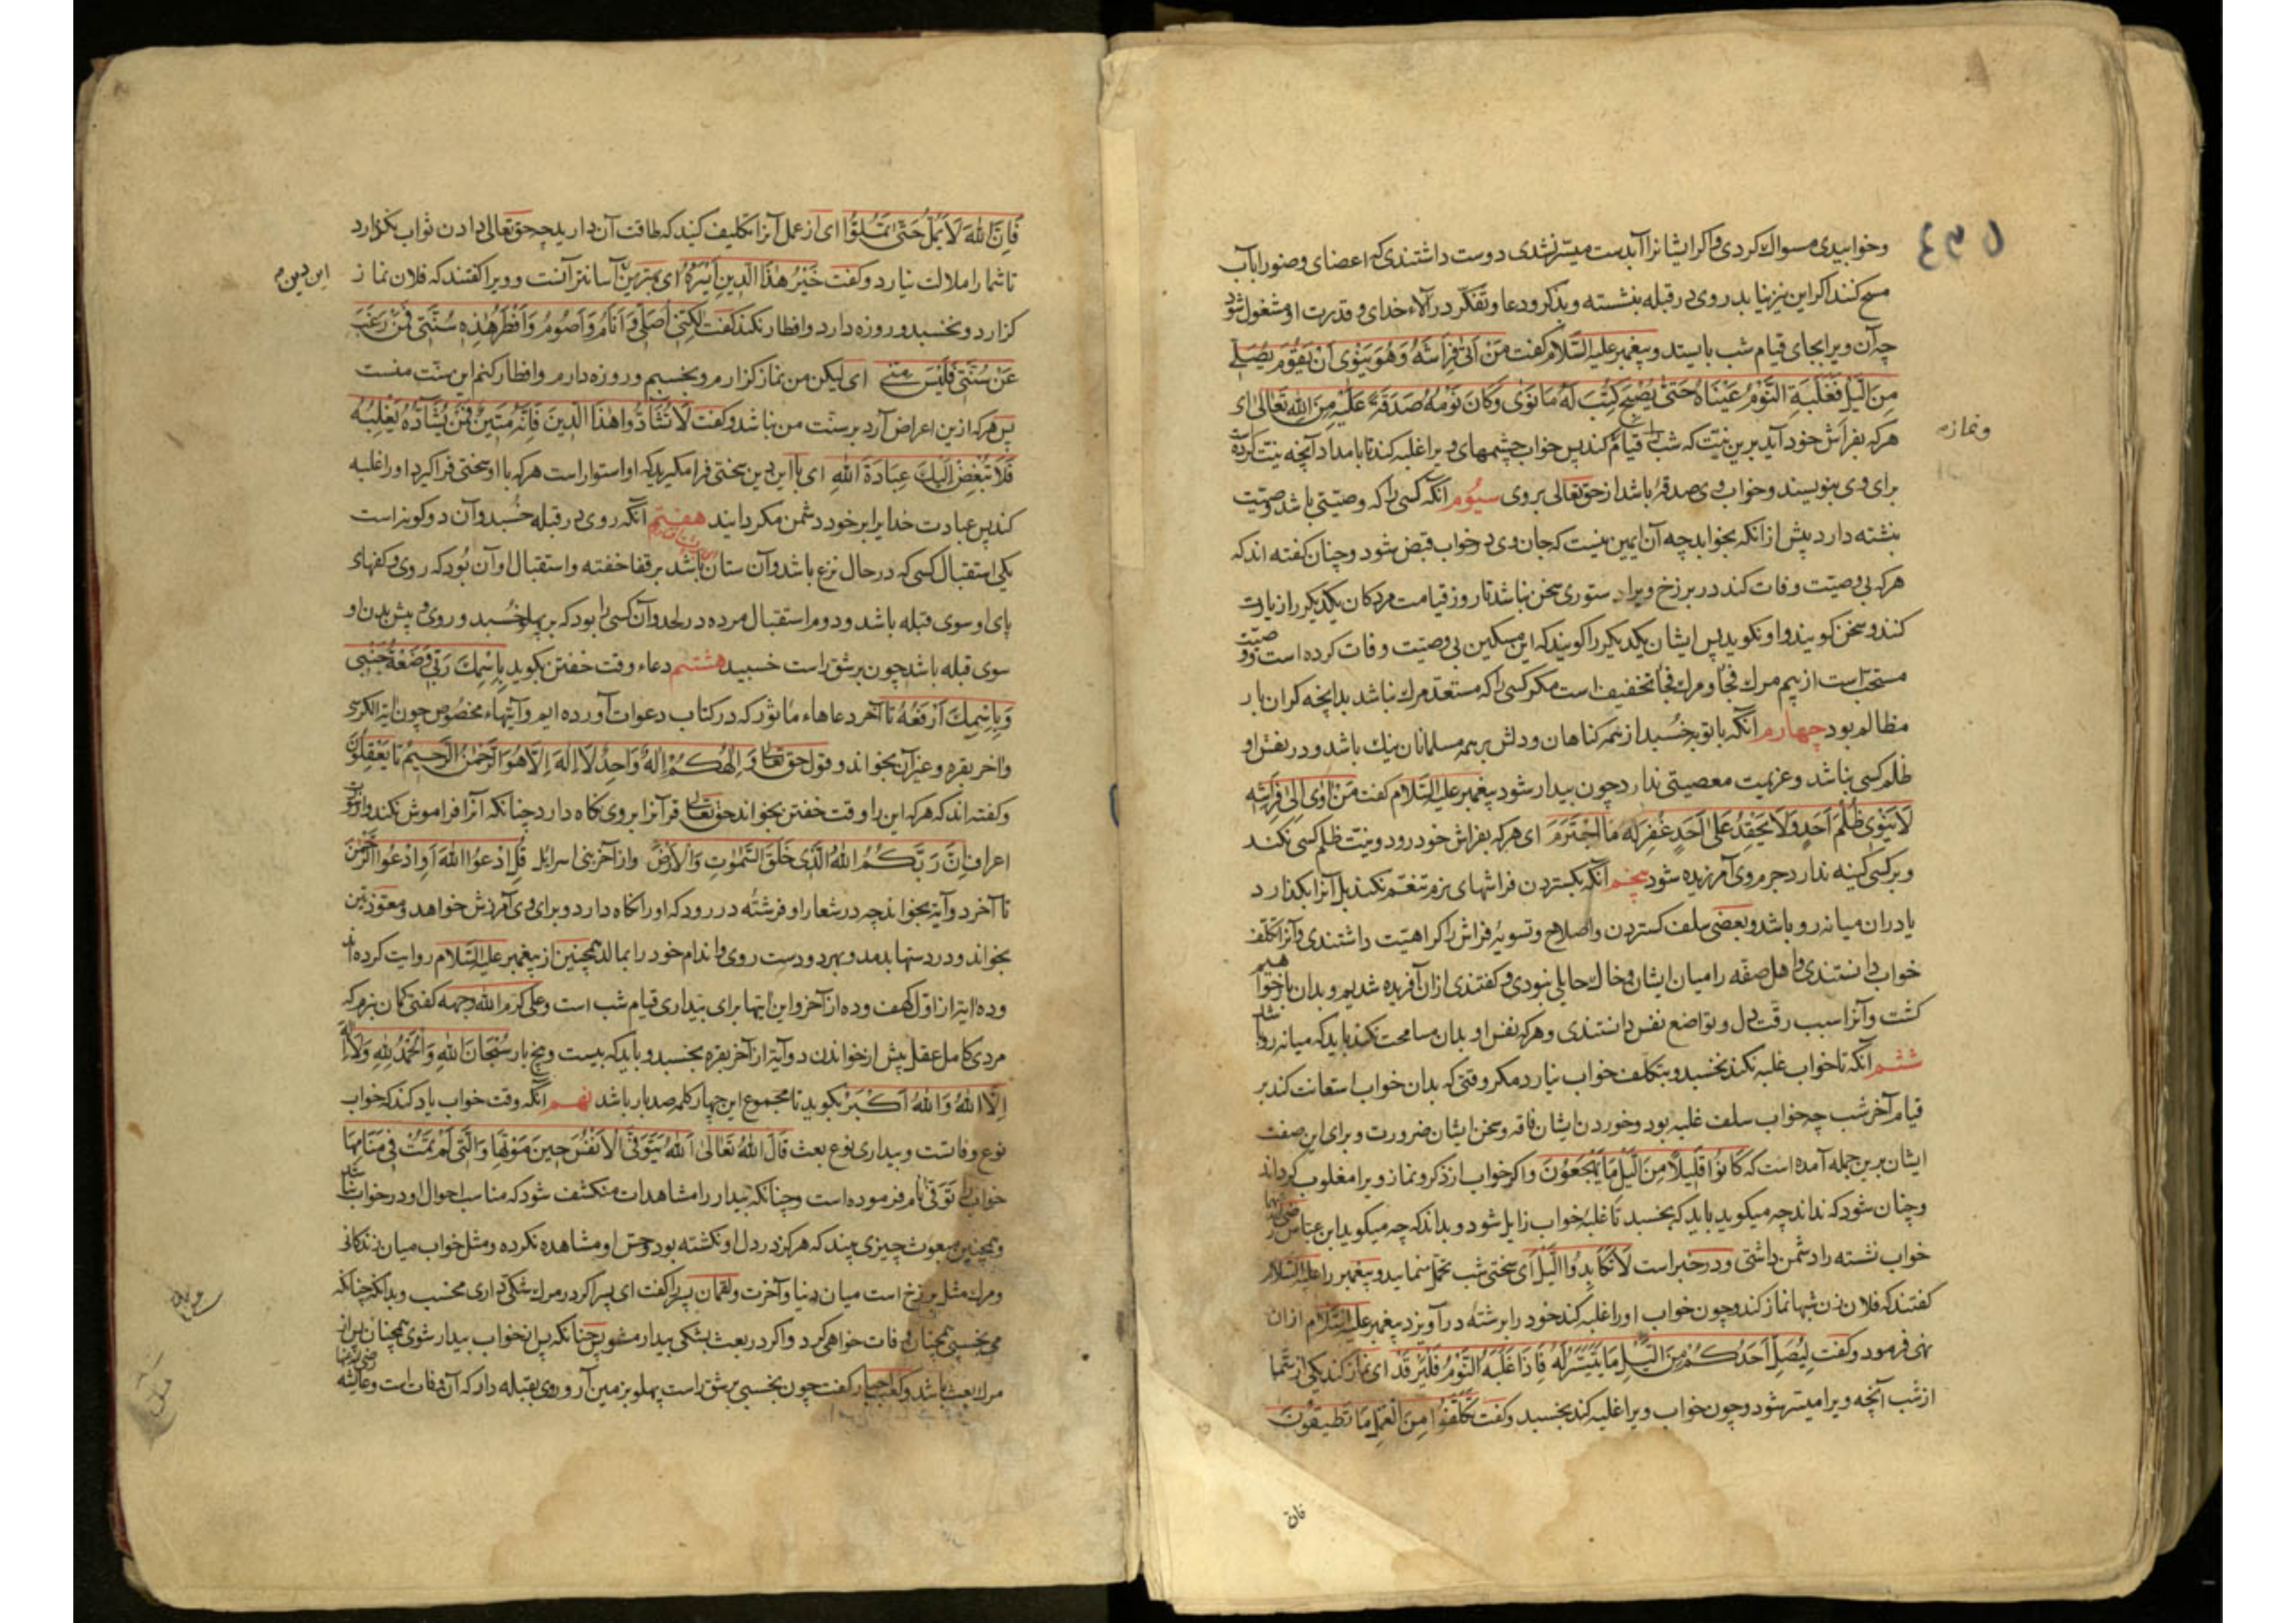 وخوابیدی مسواک کردی واکر ایشانرا آبدست میسر نشدی دوست داشتندی که اعضای وضو را بآب
مسح کنند اکر این نیز نیابد روی در قبله بنشسته و بذکر و دعا و تفکر در آلاء خدای و قدرت او مشغول شود
چه آن ویرا بجای قیام شب بایستد و پیغمبر علیه السلام کفت مَنْ اَتٰی فِرَاشَهُ وَهُوَ یَنْوِی اَنْ یَقُوْمَ یُصَلِّی
مِنَ اللَّیْلِ فَغَلَبَهُ النَّوْمُ عَیْنَاهُ حَتّٰی یُصْبِحَ کُتِبَ لَهُ مَا نَوٰی وَکَانَ نَوْمُهُ صَدَقَةً عَلَیْهِ مِنَ اللهِ تَعَالٰی ای
هرکه بفراش خود آید برین نیت که شب قیام کند پس خواب چشمهای ویرا غلبه کند تا بامداد آنچه نیت کرده
برای وی بنویسند و خواب وی صدقه باشد از حق تعالی بروی سیوم آنکه کسی را که وصیتی باشد وصیت
نبشته دارد پیش از آنکه بخوابد چه آن ایمن نیست که جان وی در خواب قبض شود و چنان کفته اند که
هرکه بی وصیت وفات کند در برزخ ویرا دستوری سخن نباشد تا روز قیامت مردکان یکدیکر را زیارت
کنند و سخن کویند و او نکوید پس ایشان یکدیکر را کویند که این مسکین بی وصیت وفات کرده است و وصیت
مستحبّ است از بیم مرک فجا و مرک فجا تخفیف است مکر کسی را که مستعد مرک نباشد بدانچه کران بار
مظالم بود چهارم آنکه با توبه خُسبد از همه کناهان و دلش بر همه مسلمانان نیک باشد و در نفس او
ظلم کسی نباشد و عزیمت معصیتی ندارد چون بیدار شود پیغمبر علیه السلام کفت مَنْ اَوٰی اِلٰی فِرَاشِهِ
لَا یَنْوِی ظُلْمَ اَحَدٍ وَلَا یَحْقِدُ عَلٰی اَحَدٍ غُفِرَ لَهُ مَا اجْتَرَمَ ای هرکه بفراش خود رود و نیت ظلم کسی نکند
و بر کسی کینه ندارد جرم وی آمرزیده شود پنجم آنکه بکستردن فراشهای نرم تنعّم نکند بل آنرا بکذارد
یا دران میانه رو باشد و بعضی سلف کستردن و اصلاح و تسویهٔ فراش را کراهیّت داشتندی و آنرا تکلف
خواب دانستندی و اهل صفه را میان ایشان و خاک حایلی نبودی و کفتندی از آن آفریده شدیم و بدان باز خواهیم
کشت و آنرا سبب رقّت دل و تواضع نفس دانستندی و هرکه نفس او بدان مسامحت نکند باید که میانه رو باشد
ششم آنکه تا خواب غلبه نکند نخسبد و بتکلف خواب نیارد مکر وقتی که بدان خواب استعانت کند بر
قیام آخر شب چه خواب سلف غلبه بود و خوردن ایشان فاقه و سخن ایشان ضرورت و برای این صفت
ایشان برین جمله آمده است که کَانُوْا قَلِیْلًا مِنَ اللَّیْلِ مَا یَهْجَعُوْنَ و اکر خواب از ذکر و نماز ویرا مغلوب کرداند
و چنان شود که نداند چه میکوید باید که بخسبد تا غلبهٔ خواب زایل شود و بداند که چه میکوید ابن عباس رضی الله عنهما
خواب نشسته را دشمن داشتی و در خبر است لَا تُکَابِدُوا اللَّیْلَ ای سختی شب تحمل منمایید و پیغمبر را علیه السلام
کفتند که فلان زن شبها نماز کند و چون خواب او را غلبه کند خود را برشته در آویزد پیغمبر علیه السلام از ان
نهی فرمود و کفت لِیُصَلِّ اَحَدُکُمْ مِنَ اللَّیْلِ مَا یَتَیَسَّرُ لَهُ فَاِذَا غَلَبَهُ النَّوْمُ فَلْیَرْقُدْ ای نماز کند یکی از شما
از شب آنچه ویرا میسر شود و چون خواب ویرا غلبه کند بخسبد و کفت تَکَلَّفُوْا مِنَ الْعَمَلِ مَا تُطِیْقُوْنَ
فان
و نماز
فَاِنَّ اللهَ لَا یَمَلُّ حَتّٰی تَمَلُّوْا ای از عمل آنرا تکلیف کنید که طاقت آن دارید چه حق تعالی دادن ثواب نکزارد
تا شما را ملالت نیارد و کفت خَیْرُ هٰذَا الدِّیْنِ اَیْسَرُهُ ای بهترین آسانتر آنست و ویرا کفتند که فلان نماز
این دین
کزارد و نخسبد و روزه دارد و افطار نکند کفت لٰکِنِّی اُصَلِّی وَاَنَامُ وَاَصُوْمُ وَاُفْطِرُ هٰذِهِ سُنَّتِی فَمَنْ رَغِبَ
عَنْ سُنَّتِی فَلَیْسَ مِنِّی ای لیکن من نماز کزارم و بخسبم و روزه دارم و افطار کنم این سنّت منست
پس هرکه ازین اعراض آرد بر سنّت من نباشد و کفت لَا تُشَادُّوْا هٰذَا الدِّیْنَ فَاِنَّهُ مَتِیْنٌ فَمَنْ یُشَادُّهُ یَغْلِبْهُ
فَلَا تُبَغِّضْ اِلَیْکَ عِبَادَةَ اللهِ ای با این دین سختی فرا مکیرید که او استوار است هرکه با او سختی فرا کیرد او را غلبه
کند پس عبادت خدا یرا بر خود دشمن مکردانید هفتم آنکه روی در قبله خُسبد و آن دو کونه است
یکی استقبال کسی که در حال نزع باشد و آن ستان باشد بر قفا خفته و استقبال او آن بُود که روی و کفهای
پای او سوی قبله باشد و دوم استقبال مرده در لحد و آن کسی را بود که بر پهلو خُسبد و روی و پیش بدن او
سوی قبله باشد چون بر شق راست خسبید هشتم دعاء وقت خفتن بکوید بِاسْمِکَ رَبِّی وَضَعْتُ جَنْبِی
وَبِاسْمِکَ اَرْفَعُهُ تا آخر دعاهاء مأثور که در کتاب دعوات آورده ایم و آیتهاء مخصوص چون آیة الکرسی
و آخر بقره و غیر آن بخواند و قول حق تعالی وَاِلٰهُکُمْ اِلٰهٌ وَاحِدٌ لَا اِلٰهَ اِلَّا هُوَ الرَّحْمٰنُ الرَّحِیْمُ تا یَعْقِلُوْنَ
و کفته اند که هرکه این را وقت خفتن بخواند حق تعالی قرآنرا بروی نکاه دارد چنانکه آنرا فراموش نکند و از سورت
اعراف اِنَّ رَبَّکُمُ اللهُ الَّذِی خَلَقَ السَّمٰوٰتِ وَالْاَرْضَ و از آخر بنی اسرایل قُلِ ادْعُوا اللهَ اَوِ ادْعُوا الرَّحْمٰنَ
تا آخر دو آیة بخواند چه در شعار او فرشته در رود که او را نکاه دارد و برای وی آمرزش خواهد و معوّذتین
بخواند و در دستها بدمد و بهر دو دست روی و اندام خود را بمالد همچنین از پیغمبر علیه السلام روایت کرده اند
و ده آیت از اوّل کهف و ده از آخر و این آیتها برای بیداری قیام شب است و علی کرم الله وجهه کفتی کمان نبرم که
مردی کامل عقل پیش از خواندن دو آیة از آخر بقره بخسبد و باید که بیست و پنج بار سُبْحَانَ اللهِ وَالْحَمْدُ لِلهِ وَلَا اِلٰهَ
اِلَّا اللهُ وَاللهُ اَکْبَرُ بکوید تا مجموع این چهار کلمه صد بار باشد نهم آنکه وقت خواب یاد کند که خواب
نوع وفاتست و بیداری نوع بعث قَالَ اللهُ تَعَالٰی اَللهُ یَتَوَفَّی الْاَنْفُسَ حِیْنَ مَوْتِهَا وَالَّتِی لَمْ تَمُتْ فِی مَنَامِهَا
خواب را تَوَفّی نام فرموده است و چنانکه بیدار را مشاهدات منکشف شود که مناسب احوال او در خواب نباشد
و همچنین مبعوث چیزی بیند که هرکز در دل او نکشته بود و حسّ او مشاهده نکرده و مثل خواب میان زندکانی
و مرک مثل برزخ است میان دنیا و آخرت و لقمان پسر را کفت ای پسر اکر در مرک شکی داری مخسب و بدانکه چنانکه
می بخسپی همچنان وفات خواهی کرد و اکر در بعث بشکی بیدار مشو پس چنانکه پس از خواب بیدار شوی همچنان پس از
مرک بعث باشد و کعب احبار کفت چون بخسبی بر شق راست پهلو بزمین آر و روی بقبله دار که آن وفات است و عایشه رضی الله عنها